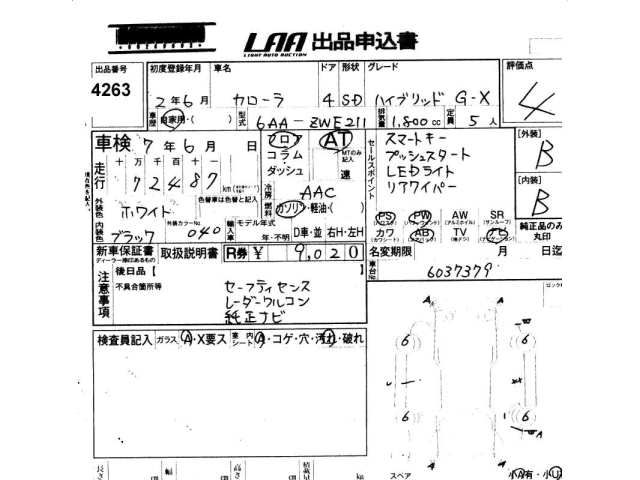 LAA 出品申込書
LIGHT AUTO AUCTION
出品番号 初度登録年月 車名 ドア 形状 グレード 評価点
4263 2年6月 カローラ 4 SD ハイブリッド G-X 4
車歴 自家用・( ) 型式 6AA-ZWE211 排気量 1,800cc 定員 5人
車検 7年6月 日 フロア コラム・ダッシュ AT MTのみ記入 速
セールスポイント スマートキー
プッシュスタート
LEDライト
リアワイパー
[外装] B
[内装] B
走行 十万千百十一 72487 km
冷房 AAC
外装色 ホワイト 色替車は色替と記入 燃料 ガソリン・軽油・( )
内装色 ブラック 外装カラーNo 040 輸入車 モデル年式 年・不明 D車・並 右H・左H
PS PW AW SR
カワ AB TV ナビ 純正品のみ丸印
(カワシート) (エアバック) (地デジ) (ナビゲーション)
新車保証書 取扱説明書 R券 ¥ 9,020 名変期限 月 日迄
ディーラー捺印あるもの
車台No. 6037379
注意事項 後日品【
不具合箇所等 セーフティセンス
レーダークルコン
純正ナビ
検査員記入 ガラス A・X要ス 室内シート A・コゲ・穴・汚れ・破れ
A A
6 6
6 6
A
A A
長さ 幅 高さ 積載量 kg
スペア 小A有・小U